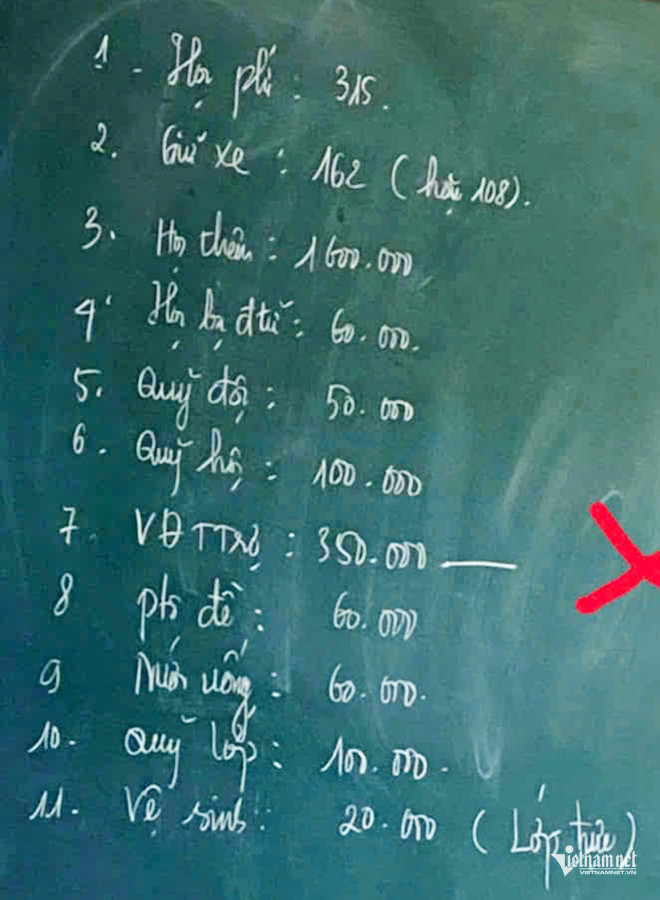 1 - Học phí : 315.
2. Giữ xe : 162 (hoặc 108).
3. Học thêm : 1600.000
4. Học bạ đtử : 60.000.
5. Quỹ đội : 50.000
6. Quỹ hội : 100.000
7 VĐ TTrợ : 350.000
8 phô đề : 60.000
9 Nước uống : 60.000.
10. Quỹ lớp : 100.000.
11. Vệ sinh : 20.000 ( Lớp thu)
vietnamnet
VIETNAMNET.VN